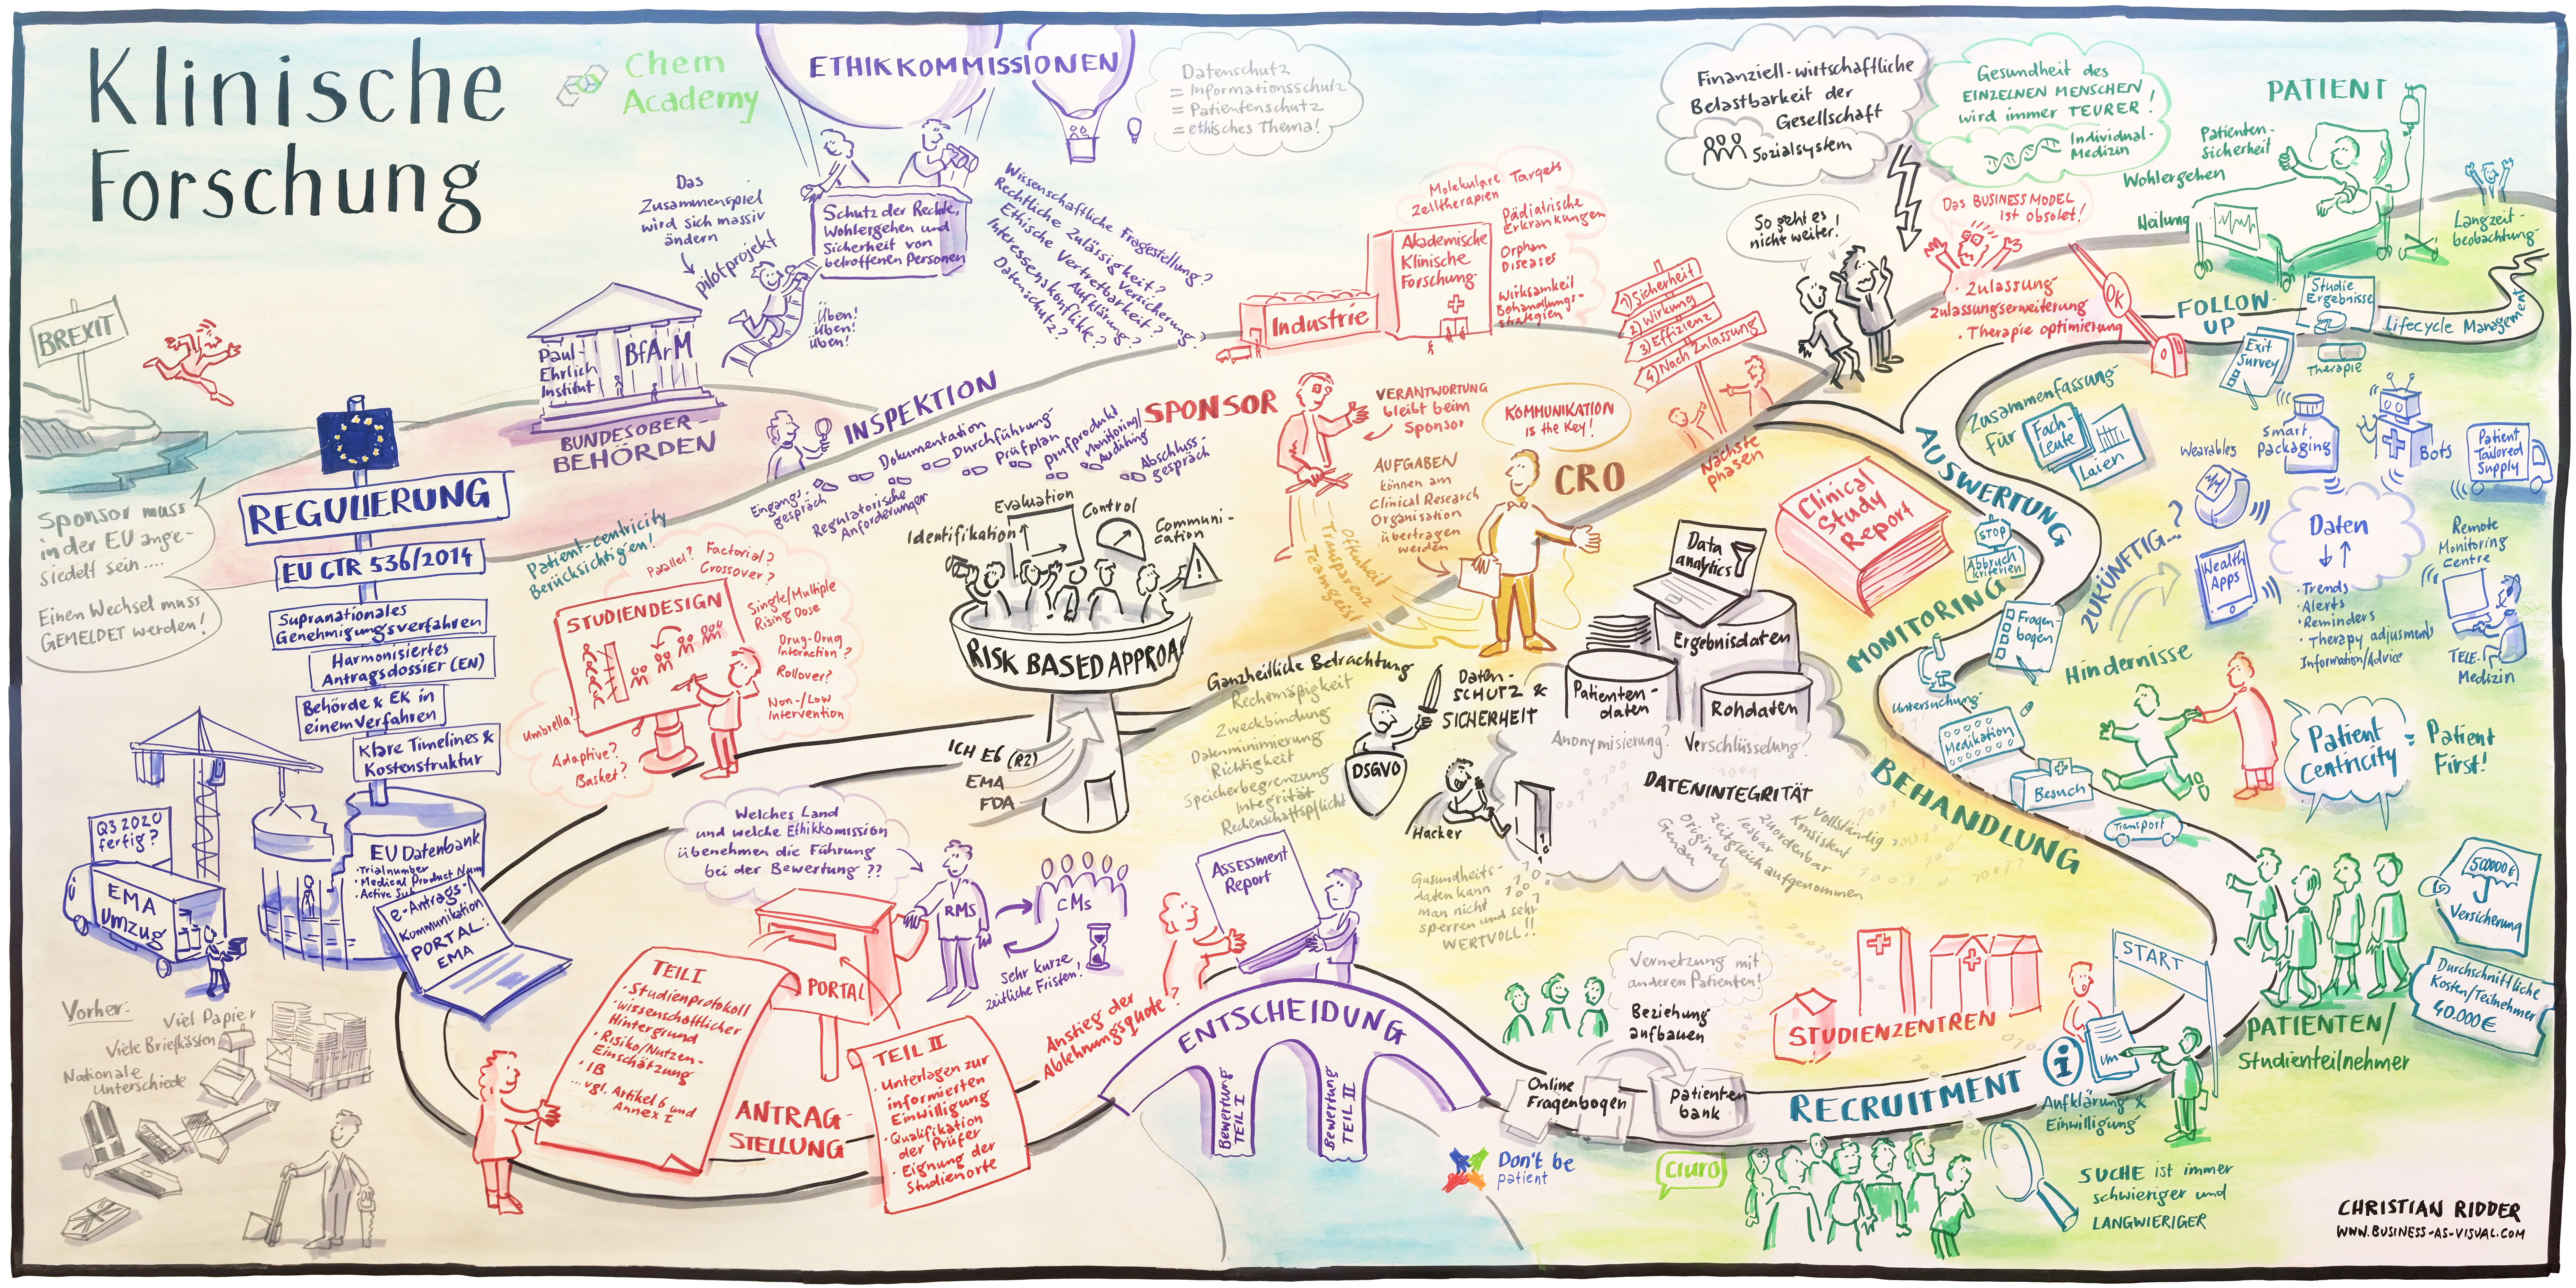 Klinische
Forschung
Chem
Academy
ETHIKKOMMISSIONEN
Datenschutz
= Informationsschutz
= Patientenschutz
= ethisches Thema!
Das
Zusammenspiel
wird sich massiv
ändern
pilotprojekt
Schutz der Rechte,
Wohlergehen und
Sicherheit von
betroffenen Personen
Üben!
Üben!
Üben!
Wissenschaftliche Fragestellung?
Rechtliche Zulässigkeit?
Ethische Vertretbarkeit? Versicherung?
Interessenskonflikte? Aufklärung?
Datenschutz?
Paul-
Ehrlich
Institut
BfArM
BUNDESOBER-
BEHÖRDEN
INSPEKTION
Eingangs-
gespräch
Regulatorische
Anforderungen
Dokumentation
Durchführung
Prüfplan
prüfprodukt
Monitoring/
Auditing
Abschluss-
gespräch
BREXIT
Sponsor muss
in der EU ange-
siedelt sein....
Einen Wechsel muss
GEMELDET werden!
REGULIERUNG
EU CTR 536/2014
Supranationales
Genehmigungsverfahren
Harmonisiertes
Antragsdossier (EN)
Behörde & EK in
einem Verfahren
Klare Timelines &
Kostenstruktur
Q3 2020
fertig?
EMA
Umzug
EU Datenbank
· Trialnumber
· Medical Product Num
· Active Sub
e-Antrags-
Kommunikation
PORTAL:
EMA
Vorher:
Viel Papier
Viele Briefkästen
Nationale
Unterschiede
Patient-centricity
Berücksichtigen!
STUDIENDESIGN
Parallel? Factorial?
Crossover?
Single/Multiple
Rising Dose
Drug-Drug
Interaction?
Rollover?
Non-/Low
Intervention
Umbrella?
Adaptive?
Basket?
Identifikation
Evaluation
Control
Communi-
cation
RISK BASED APPROA
ICH E6 (R2)
EMA
FDA
Welches Land
und welche Ethikkomission
übenehmen die Führung
bei der Bewertung ??
RMS
CMs
Sehr kurze
zeitliche Fristen!
PORTAL
TEIL I
· Studienprotokoll
· wissenschaftlicher
Hintergrund
· Risiko/Nutzen-
Einschätzung
· IB
... vgl. Artikel 6 und
Annex I
ANTRAG-
STELLUNG
TEIL II
· Unterlagen zur
informierten
Einwilligung
· Qualifikation
der Prüfer
· Eignung der
Studienorte
Anstieg der
Ablehnungsquote?
Assessment
Report
ENTSCHEIDUNG
Bewertung
TEIL I
Bewertung
TEIL II
Industrie
Akademische
Klinische
Forschung
Molekulare Targets
Zelltherapien
Pädiatrische
Erkrankungen
Orphan
Diseases
Wirksamkeit
Behandlungs-
strategien
SPONSOR
VERANTWORTUNG
bleibt beim
Sponsor
AUFGABEN
können am
Clinical Research
Organisation
übertragen
werden
Offenheit
Transparenz
Teamgeist
KOMMUNIKATION
is the Key!
CRO
1) Sicherheit
2) Wirkung
3) Effizienz
4) Nach Zulassung
Nächste
phasen
Finanziell-wirtschaftliche
Belastbarkeit der
Gesellschaft
Sozialsystem
Gesundheit des
EINZELNEN MENSCHEN
wird immer TEURER!
Individual-
Medizin
So geht es
nicht weiter!
Das BUSINESS MODEL
ist obsolet!
· Zulassung
Zulassungserweiterung
· Therapie optimierung
OK
PATIENT
Patienten-
sicherheit
Wohlergehen
Heilung
Langzeit-
beobachtung
FOLLOW-
UP
Studie
Ergebnisse
Lifecycle Management
Exit
Survey
Therapie
Zusammenfassung
für
Fach-
Leute
Laien
AUSWERTUNG
Clinical
Study
Report
STOP
Abbruch
kriterien
MONITORING
Fragen-
bogen
Untersuchung
Medikation
Besuch
Transport
BEHANDLUNG
Hindernisse
ZUKÜNFTIG...?
Wearables
Smart
Packaging
Bots
Patient
Tailored
Supply
Daten
Health
Apps
· Trends
· Alerts
· Reminders
· Therapy adjusments
Information/Advice
Remote
Monitoring
Centre
TELE-
Medizin
Patient
Centricity
= Patient
First!
Data
analytics
Ergebnisdaten
Patienten-
daten
Rohdaten
Anonymisierung?
Verschlüsselung?
DATENINTEGRITÄT
Vollständig
Konsistent
Zuordenbar
lesbar
Zeitgleich aufgenommen
Original
Genau
Ganzheitliche Betrachtung
Rechtmäßigkeit
Zweckbindung
Datenminimierung
Richtigkeit
Speicherbegrenzung
Integrität
Rechenschaftspflicht
Daten-
SCHUTZ &
SICHERHEIT
DSGVO
Hacker
Gusundheits-
daten kann
man nicht
sperren und sehr
WERTVOLL!!
Vernetzung mit
anderen Patienten!
Beziehung
aufbauen
Online
Fragenbogen
patienten
bank
STUDIENZENTREN
RECRUITMENT
START
Aufklärung &
Einwilligung
PATIENTEN/
Studienteilnehmer
500000€
Versicherung
Durchschnittliche
Kosten/Teilnehmer
40.000€
Don't be
patient
ciuro
SUCHE ist immer
schwieriger und
LANGWIERIGER
CHRISTIAN RIDDER
WWW.BUSINESS-AS-VISUAL.COM